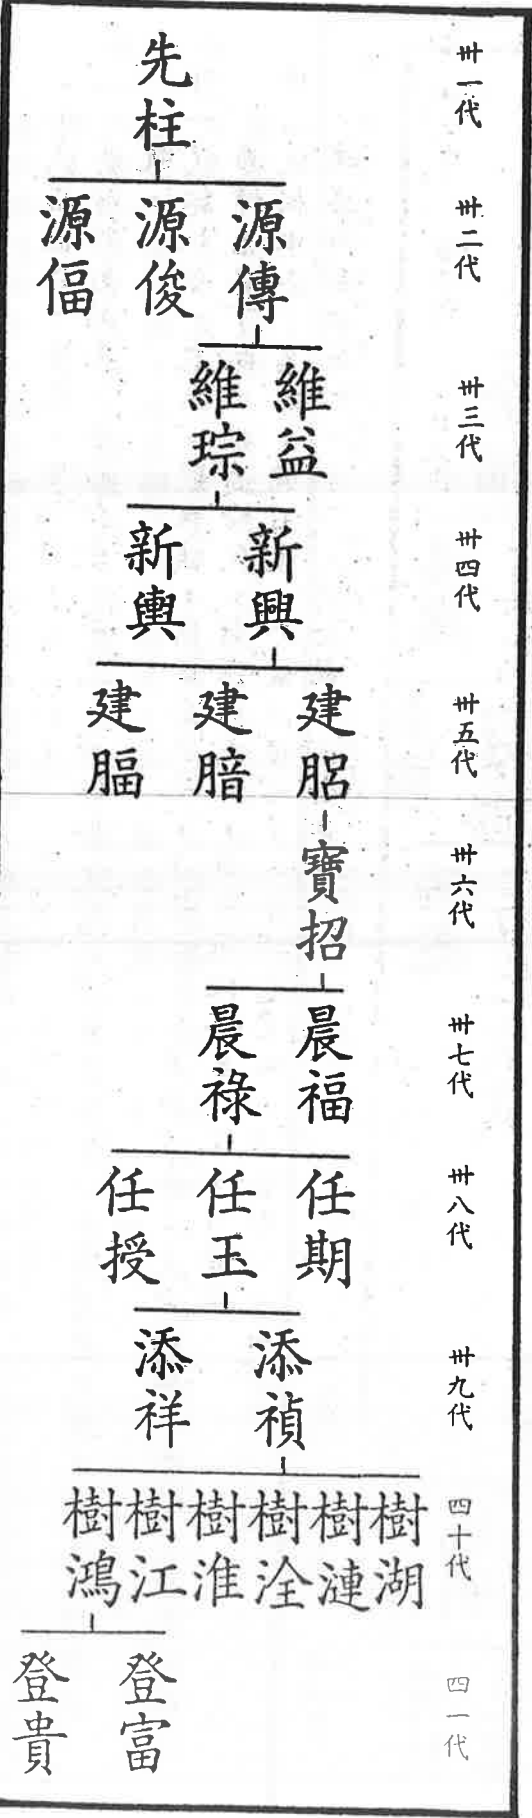 卅一代
先柱
卅二代
源傳 源俊 源偪
卅三代
維益 維琮
卅四代
新興 新輿
卅五代
建䏰 建腤 建腷
卅六代
寶招
卅七代
晨福 晨祿
卅八代
任期 任玉 任授
卅九代
添禎 添祥
四十代
樹湖 樹漣 樹洤 樹淮 樹江 樹鴻
四一代
登富 登貴